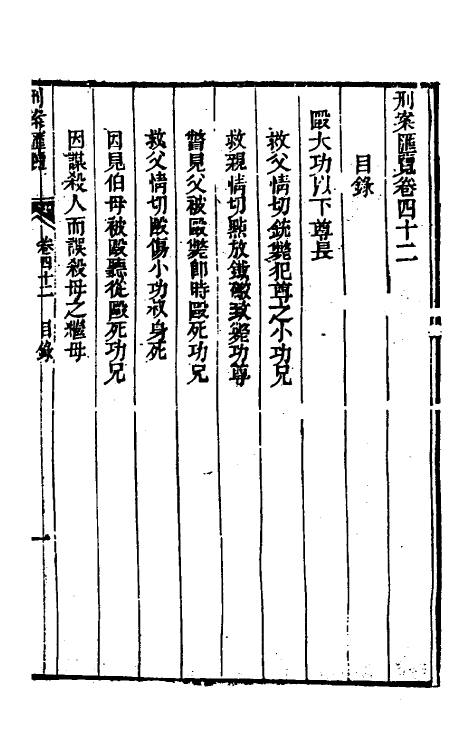 刑案匯覽卷四十二
目錄
毆大功以下尊長
救父情切銃斃犯尊之小功兄
救親情切點放鐵礮致斃功尊
瞥見父被毆斃卽時毆死功兄
救父情切毆傷小功叔身死
因見伯母被毆聽從毆死功兄
因謀殺人而誤殺母之繼母
刑案匯覽 卷四十二 目錄 一